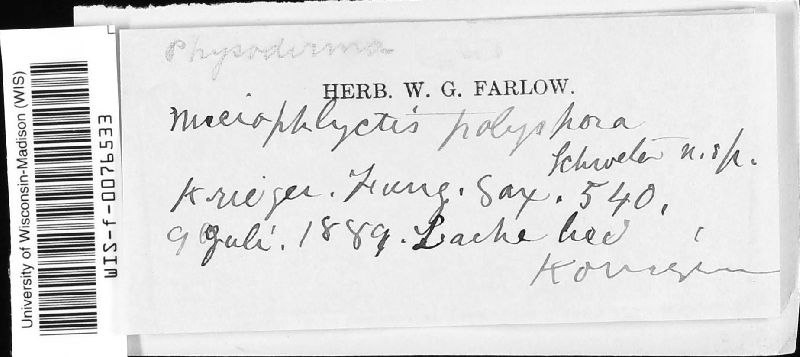 University of Wisconsin-Madison (WIS)
WIS-f-0076533
Physoderma
HERB. W. G. FARLOW.
polyspora
Schroeter n.sp.
Krieger. Fung. Sax. 540,
9 Juli. 1889.